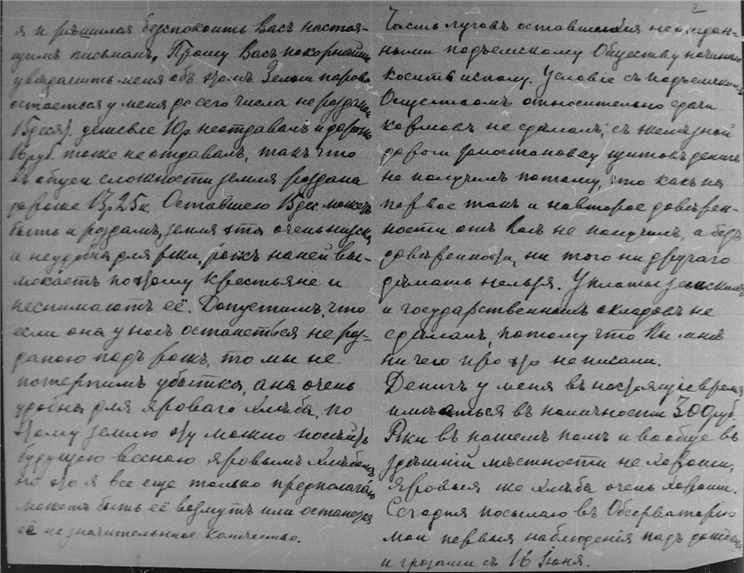 я и рѣшилая безпокоить Васъ настоя-
щимъ письмомъ. Прошу Васъ покорнѣйше
увѣдомить меня объ этомъ. Земли паровой
остается у меня до сего числа не роздано
15 десят. дешевле 10р. не отдавалъ и дороже
руб. тоже не отдавалъ, такъ что
въ общей сложности земля роздана
дороже 13р. 25к. Оставшею 15 дес. можетъ
быть и роздамъ, земля эта очень низка
и неудобна для ржи, рожъ на ней вы-
мокаетъ поэтому крестьяне и
неснимаютъ её. Допустимъ, что
если она у насъ останеться не роз-
даною подъ рожъ, то мы не
потерпимъ убытка, она очень
удобна для яроваго хлѣба, по
этому землю эту можно посѣять
будущею весною яровымъ хлѣбомъ,
но это я все еще только предполагаю
можетъ быть её возмутъ или останется
её незначительное количество.
2
Часть луговъ оставшихся
подъемскому Обществу начинаю
косить исполу. Условіе съ подъемскимъ
Обществомъ относительно сдачи
кормовъ не сдѣлалъ; съ желѣзной
дороги за постановку щитовъ денегъ
не получилъ потому, что какъ на
первое такъ и на второе довѣрен-
ности отъ Васъ не получилъ, а безъ
довѣренности, ни того ни другаго
дѣлать нельзя. Уплаты земскимъ
и государственнымъ окладовъ не
сдѣлалъ, потому что Вы мнѣ
ни чего про это не писали.
Денегъ у меня въ настоящее время
имѣаться въ наличности 300 руб.
Ржи въ нашемъ полѣ и вообще въ
здѣшній мѣстности не хороши,
яровыя же хлѣба очень хороши.
Сегодня посылаю въ Обсерваторію
мои первыя наблюденія надъ дождемъ
и грозами съ 16 Іюня.